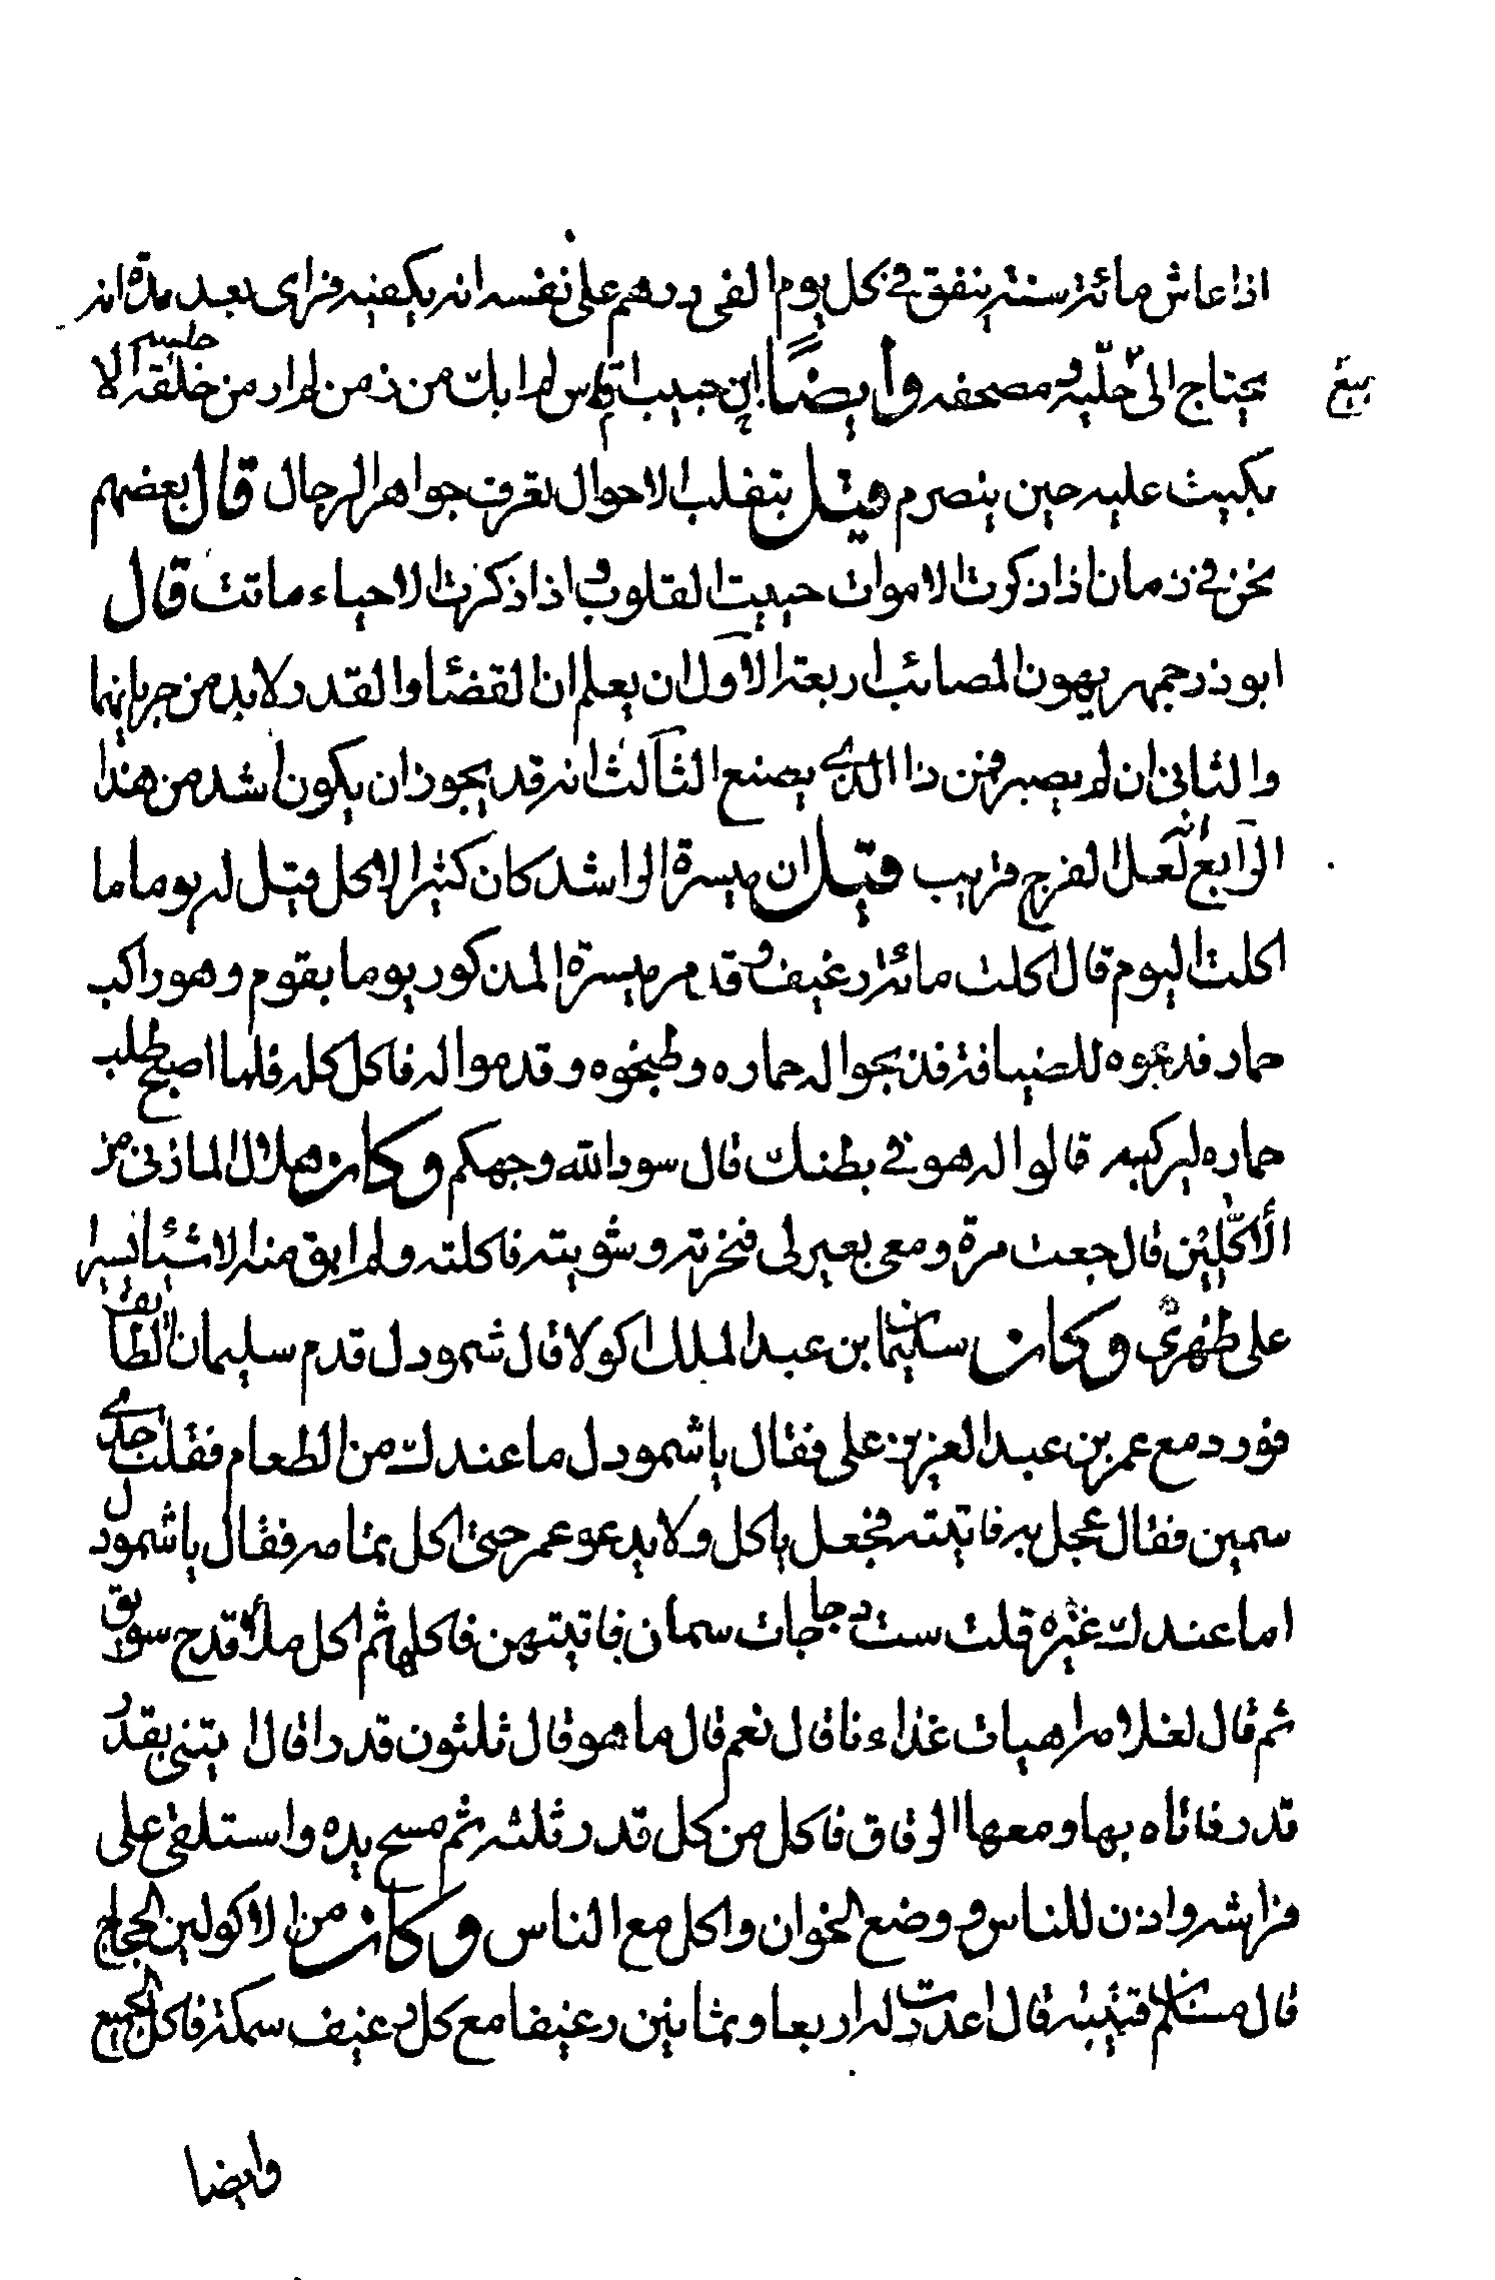 اذا عاش مائة سنة ينفق في كل يوم الفى درهم على نفسه انه يكفيه فراى بعد مدة انه
يحتاج الى حلية مصحفه وايضا ابن حبيب اوس لم ابك من زمن لم ارد من خلقه الا
بيع
بكيت عليه حين ينصرم قيل بتقلب الاحوال تعرف جواهر الرجال قال بعضهم
نحن في زمان اذا ذكرت الاموات حييت القلوب واذا ذكرت الاحياء ماتت قال
ابوذرجمهر يهون المصائب اربعة الاول ان يعلم ان القضاء والقدر لابد من جريانهما
والثانى ان لم يصبر فمن ذا الذي يصنع الثالث انه قد يجوز ان يكون اشد من هذا
الرابع انه لعل الفرج قريب قيل ان ميسرة الراشد كان كثير الاكل قيل له يوما ما
اكلت اليوم قال اكلت مائة رغيف وقد مر ميسرة المذكور يوما بقوم وهو راكب
حمار فدعوه للضيافة فذبحوا له حماره وطبخوه وقدموا له فاكل كله فلما اصبح طلب
حماره ليركبه قالوا له هو في بطنك قال سود الله وجهكم وكان هلال المازنى من
الأكّلين قال جعت مرة ومعى بعير لى فنحرته وشويته فاكلته ولم ابق منه الا شيئا يسيرا
على ظهري وكان سليمان بن عبد الملك اكولا قال شمودل قدم سليمان الطائف
فورد مع عمر بن عبد العزيز على فقال يا شمودل ما عندك من الطعام فقلت جدي
سمين فقال عجل به فاتيته فجعل ياكل ولا يدعو عمر حتى اكل بتمامه فقال يا شمودل
اما عندك غيره قلت ست دجاجات سمان فاتيتهن فاكلها ثم اكل ملأ قدح سويق
ثم قال لغلامه اهيات غذاءنا قال نعم قال ما هو قال ثلثون قدرا قال ايتنى بقدر
قدر فاتاه بها ومعها الرقاق فاكل من كل قدر ثلثه ثم مسح يده واستلقى على
فراشه واذن للناس ووضع الخوان واكل مع الناس وكان من الاكولين الحجاج
قال مسلم قتيبة قال اعددت له اربعا وثمانين رغيفا مع كل رغيف سمكة فاكل الجميع
وايضا